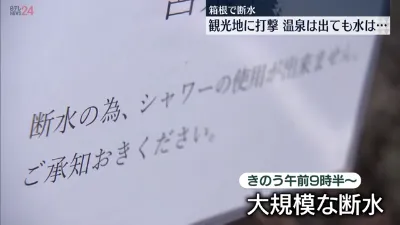 news24
箱根で断水
観光地に打撃 温泉は出ても水は…
断水の為、シャワーの使用が出来ません。
ご承知おきください。
きのう午前9時半～
大規模な断水